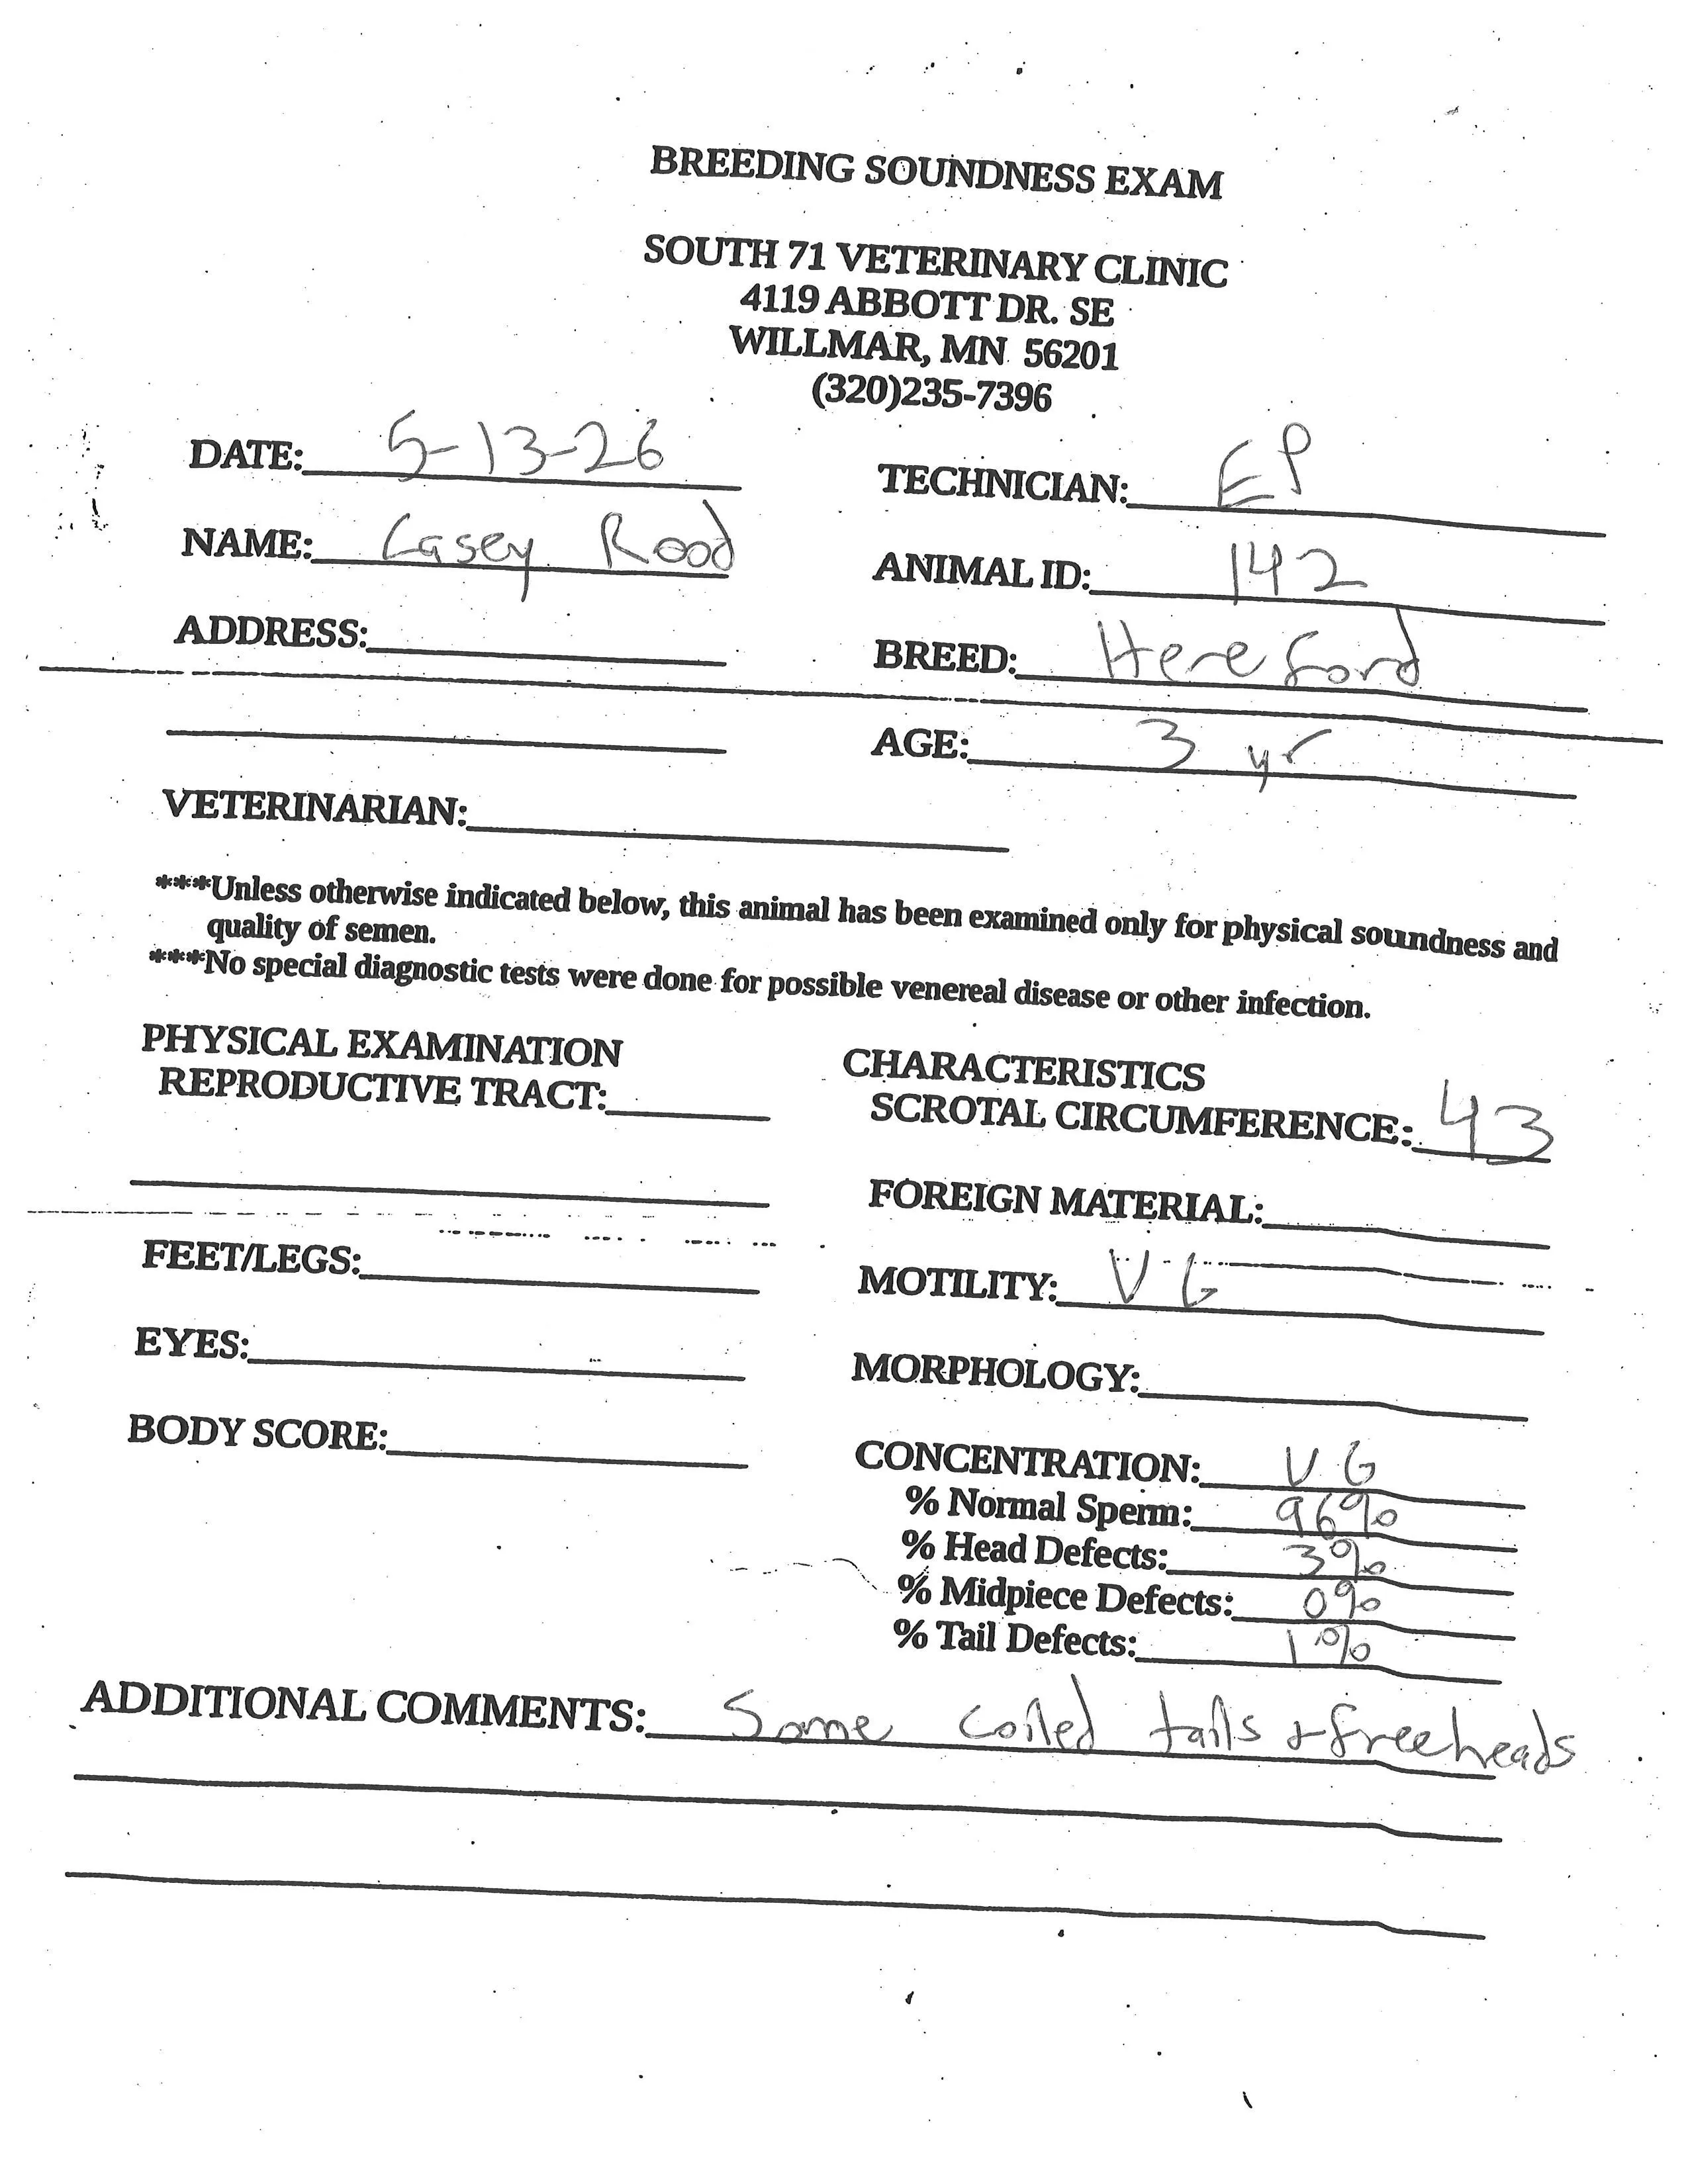 BREEDING SOUNDNESS EXAM
SOUTH 71 VETERINARY CLINIC
4119 ABBOTT DR. SE
WILLMAR, MN 56201
(320)235-7396
DATE: 5-13-26
TECHNICIAN: EP
NAME: Casey Rood
ANIMAL ID: 142
ADDRESS:
BREED: Hereford
AGE: 3 yr
VETERINARIAN:
***Unless otherwise indicated below, this animal has been examined only for physical soundness and
quality of semen.
***No special diagnostic tests were done for possible venereal disease or other infection.
PHYSICAL EXAMINATION
REPRODUCTIVE TRACT:
FEET/LEGS:
EYES:
BODY SCORE:
CHARACTERISTICS
SCROTAL CIRCUMFERENCE: 43
FOREIGN MATERIAL:
MOTILITY: VG
MORPHOLOGY:
CONCENTRATION: VG
% Normal Sperm: 96%
% Head Defects: 3%
% Midpiece Defects: 0%
% Tail Defects: 1%
ADDITIONAL COMMENTS: Some coiled tails + freeheads